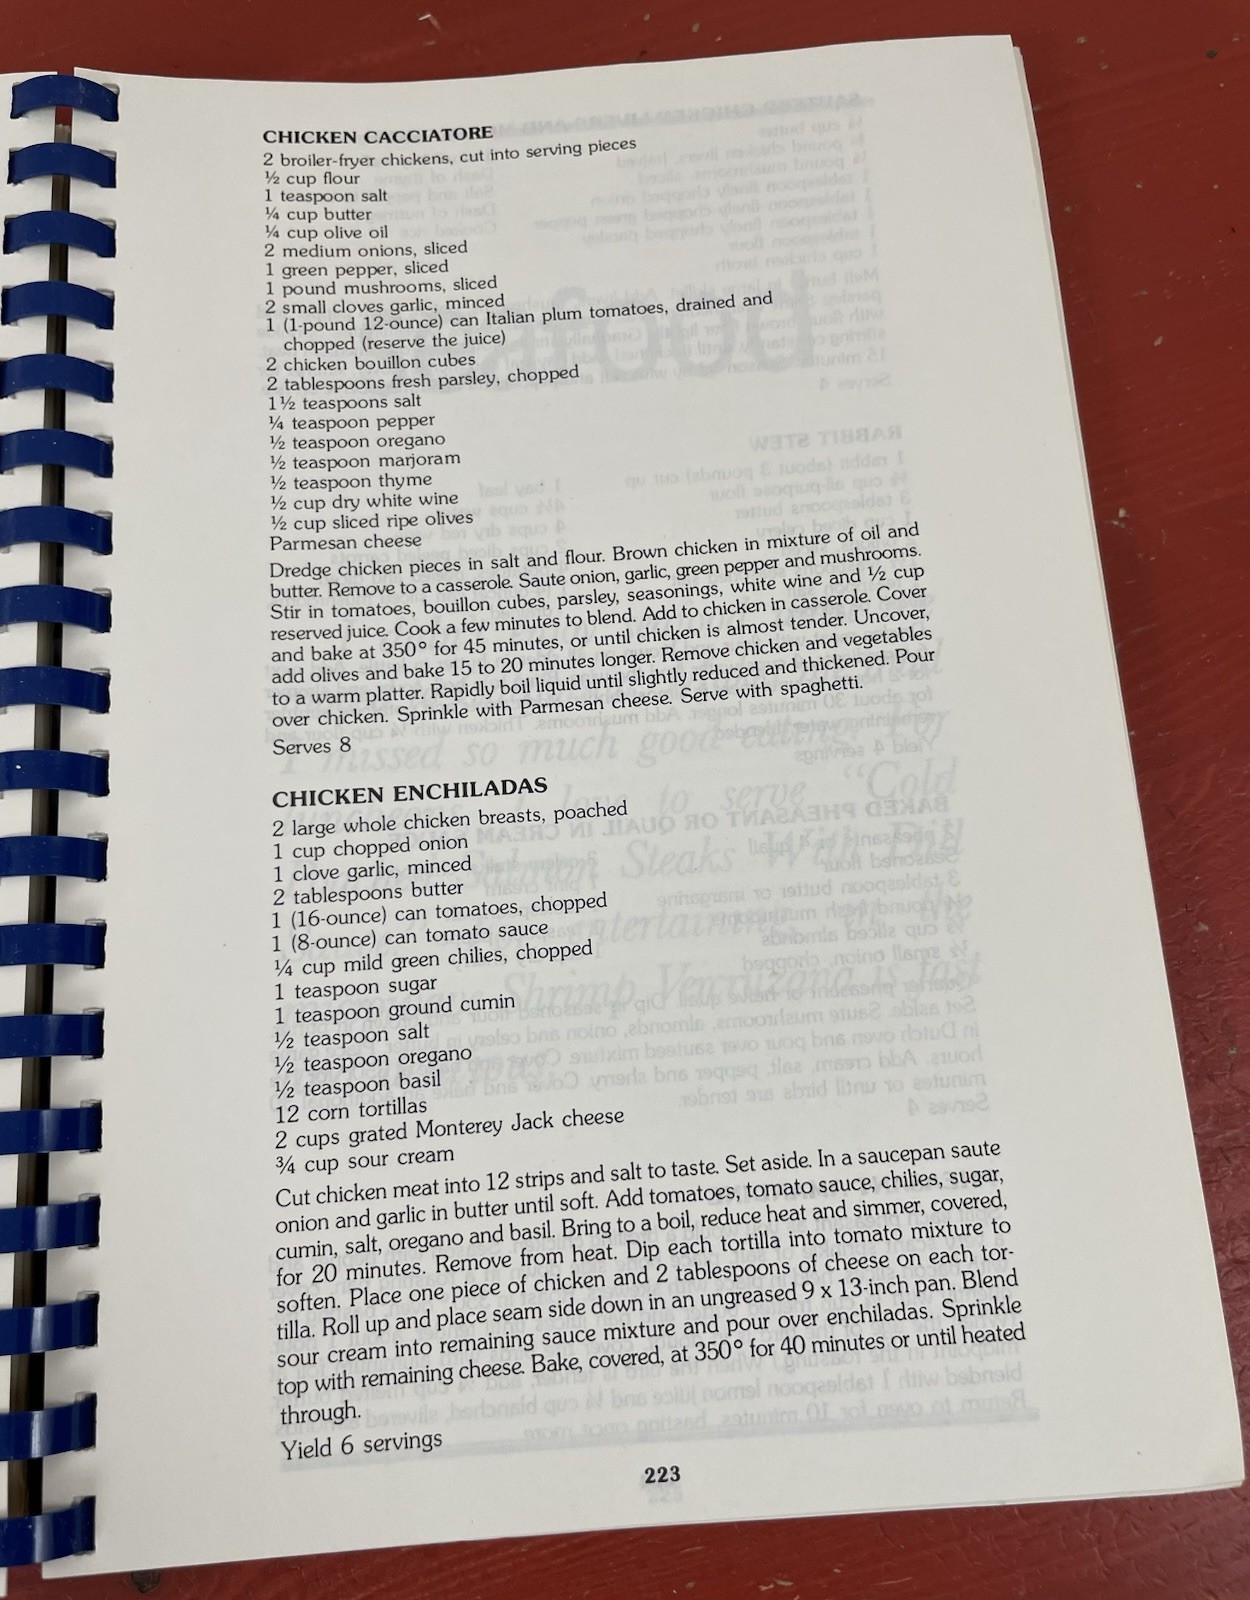 CHICKEN CACCIATORE
2 broiler-fryer chickens, cut into serving pieces
½ cup flour
1 teaspoon salt
¼ cup butter
¼ cup olive oil
2 medium onions, sliced
1 green pepper, sliced
1 pound mushrooms, sliced
2 small cloves garlic, minced
1 (1-pound 12-ounce) can Italian plum tomatoes, drained and
chopped (reserve the juice)
2 chicken bouillon cubes
2 tablespoons fresh parsley, chopped
1½ teaspoons salt
¼ teaspoon pepper
½ teaspoon oregano
½ teaspoon marjoram
½ teaspoon thyme
½ cup dry white wine
½ cup sliced ripe olives
Parmesan cheese
Dredge chicken pieces in salt and flour. Brown chicken in mixture of oil and
butter. Remove to a casserole. Saute onion, garlic, green pepper and mushrooms.
Stir in tomatoes, bouillon cubes, parsley, seasonings, white wine and ½ cup
reserved juice. Cook a few minutes to blend. Add to chicken in casserole. Cover
and bake at 350° for 45 minutes, or until chicken is almost tender. Uncover,
add olives and bake 15 to 20 minutes longer. Remove chicken and vegetables
to a warm platter. Rapidly boil liquid until slightly reduced and thickened. Pour
over chicken. Sprinkle with Parmesan cheese. Serve with spaghetti.
Serves 8
CHICKEN ENCHILADAS
2 large whole chicken breasts, poached
1 cup chopped onion
1 clove garlic, minced
2 tablespoons butter
1 (16-ounce) can tomatoes, chopped
1 (8-ounce) can tomato sauce
¼ cup mild green chilies, chopped
1 teaspoon sugar
1 teaspoon ground cumin
½ teaspoon salt
½ teaspoon oregano
½ teaspoon basil
12 corn tortillas
2 cups grated Monterey Jack cheese
¾ cup sour cream
Cut chicken meat into 12 strips and salt to taste. Set aside. In a saucepan saute
onion and garlic in butter until soft. Add tomatoes, tomato sauce, chilies, sugar,
cumin, salt, oregano and basil. Bring to a boil, reduce heat and simmer, covered,
for 20 minutes. Remove from heat. Dip each tortilla into tomato mixture to
soften. Place one piece of chicken and 2 tablespoons of cheese on each tor-
tilla. Roll up and place seam side down in an ungreased 9 x 13-inch pan. Blend
sour cream into remaining sauce mixture and pour over enchiladas. Sprinkle
top with remaining cheese. Bake, covered, at 350° for 40 minutes or until heated
through.
Yield 6 servings
223